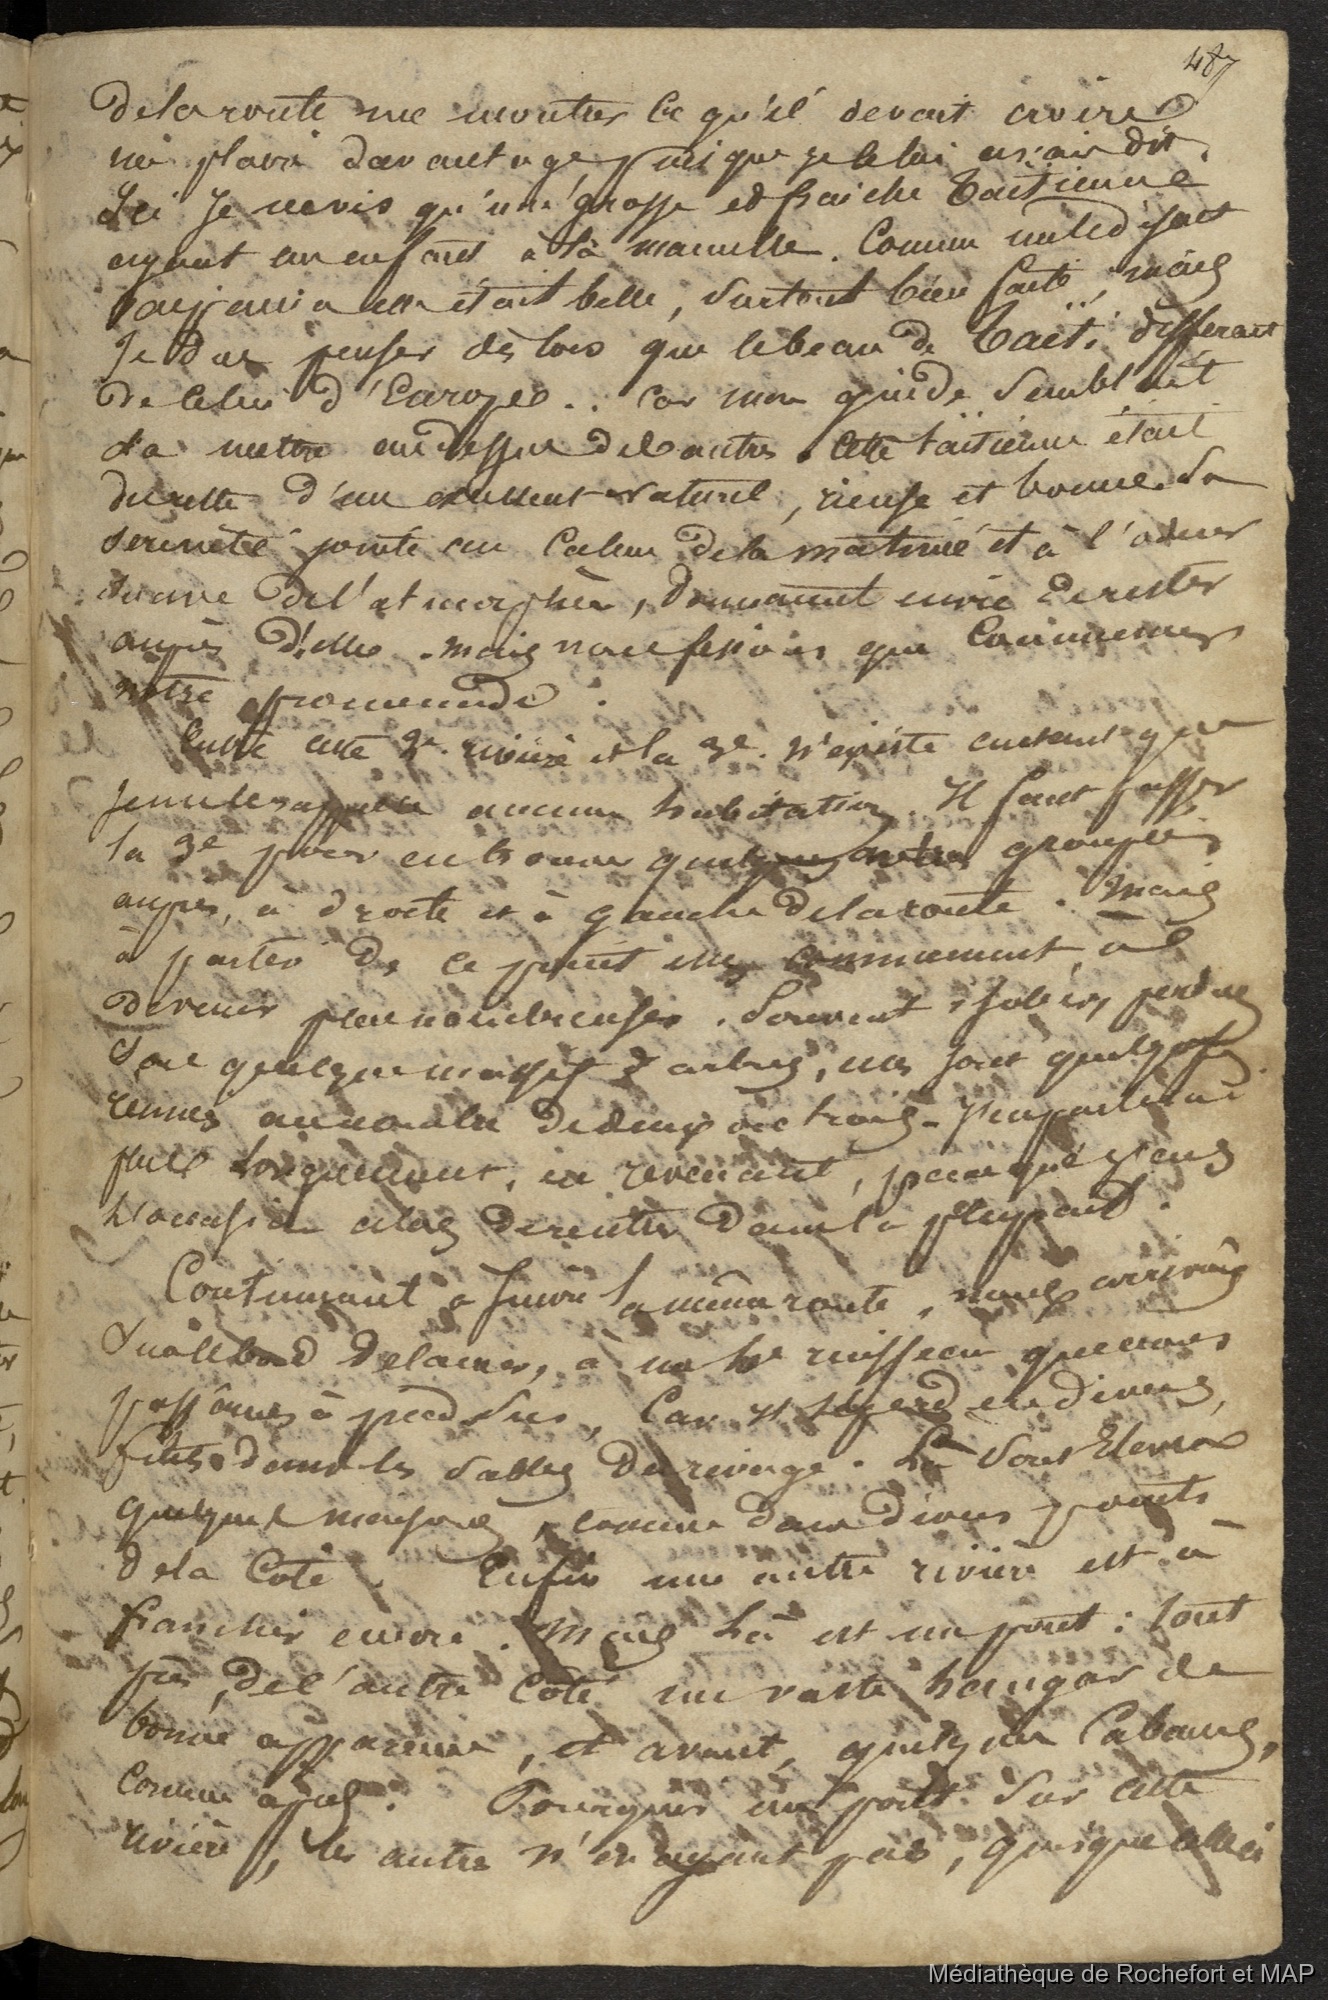 487
de la route me montrer ce qu'il devait croire
me plaire davantage, puisque je le lui avais dit.
Ici je ne vis qu'une grosse et fraiche taïtienne
ayant un enfant à la mamelle. Comme me le disait
elle était belle, surtout bien faite, mais
Je dus penser dès lors que le beau de Taïti différait
de celui d'Europe.. car mon guide semblait
la mettre au dessus des autres. Cette taïtienne était
du reste d'un excellent naturel, rieuse et bonne. La
sérénité jointe au calme de la matinée et à l'odeur
suave de l'atmosphère, donnaient envie de rester
auprès d'elle. mais nous fesions que commencer
notre promenade.
Entre cette 2e rivière et la 3e n'existe autant que
je me le rappelle aucune habitation. Il faut passer
la 3e pour en trouver quelques autres groupées
auprès, à droite et à gauche de la route. Mais
à partir de ce point elles commencent à
devenir plus nombreuses. Souvent isolées, perdues
sous quelque massif d'arbres, elles sont quelquefois
réunies au nombre de deux ou trois. J'en parlerai
plus longuement, en revenant, parce que j'eus
l'occasion alors d'entrer dans la plupart.
Continuant à suivre la même route, nous arrivons
sur le bord de la mer, à un ruisseau que nous
passâmes à pied sec, car il se perd en divers
filets dans les sables du rivage. Là sont élevées
quelques maisons, comme dans divers points
de la Cote. Enfin une autre rivière est à
franchir encore. Mais là est un pont : tout
près, de l'autre côté un vaste hangar de
bonne apparence, et avant, quelques Cabanes,
comme après. Pourquoi un pont sur cette
rivière, les autres n'en ayant pas, quoique celle ci
Médiathèque de Rochefort et MAP